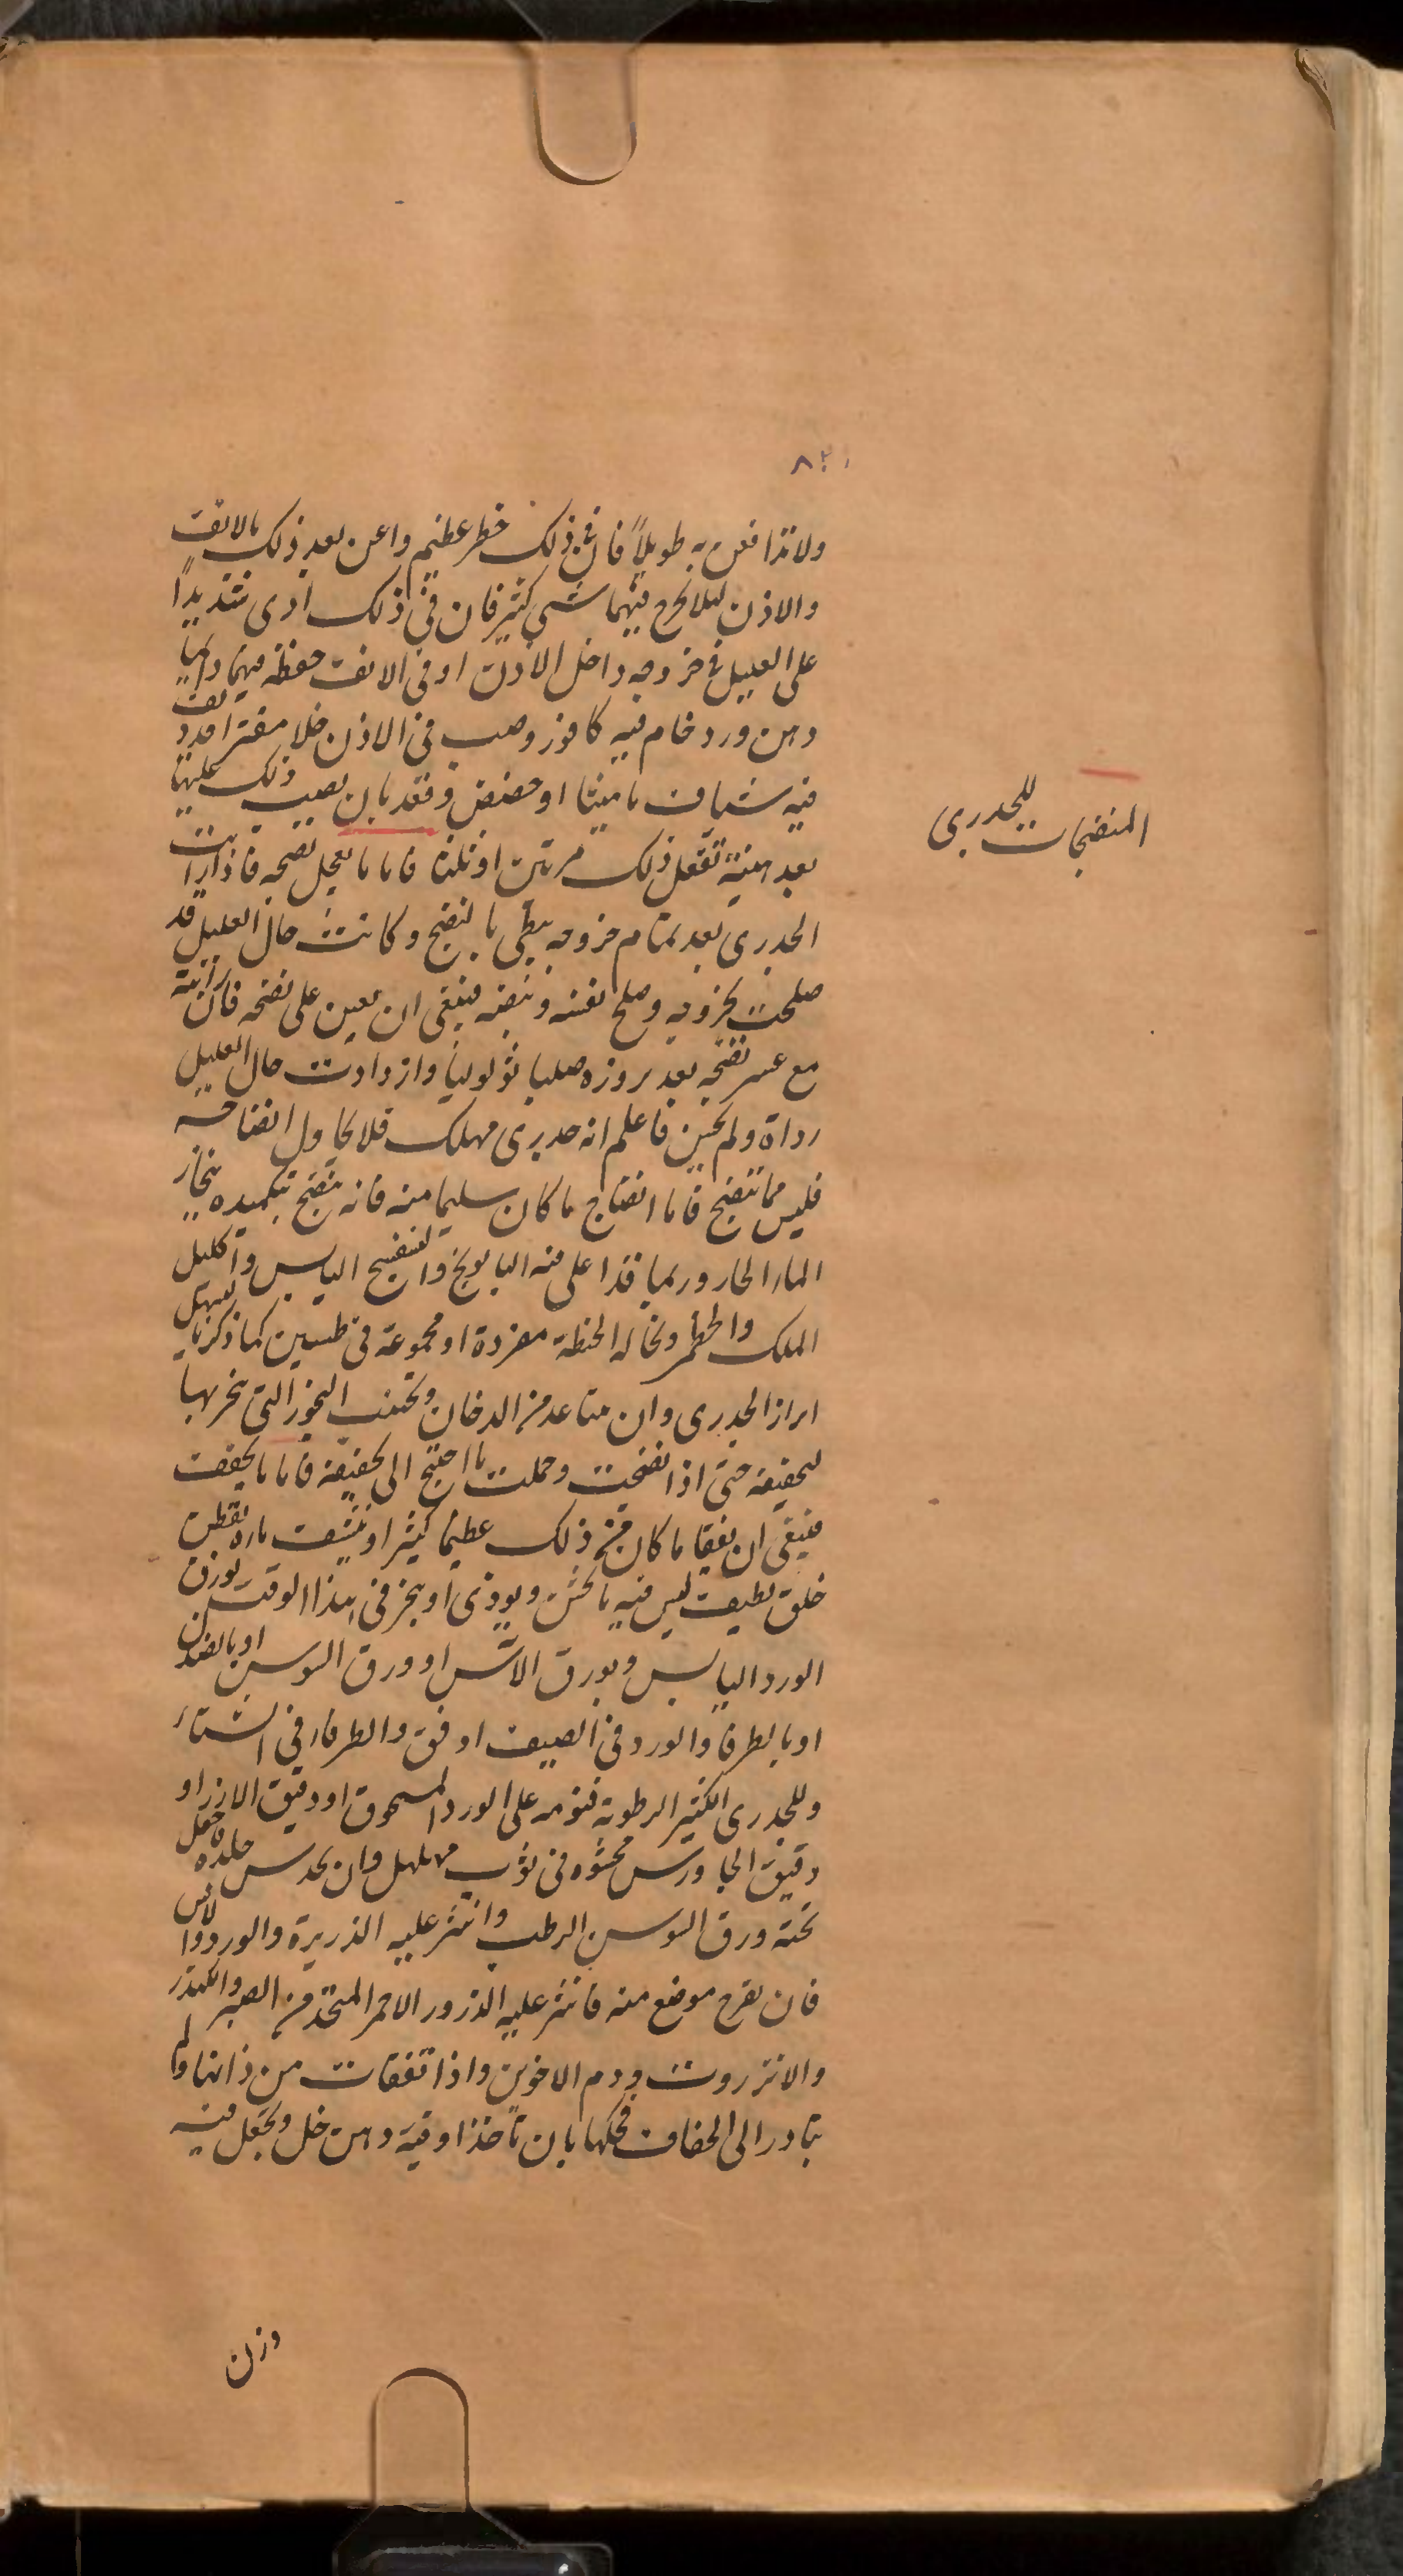 ولا تدافعن به طويلاً فان في ذلك خطر عظيم واعن بعد ذلك بالانف
والاذن ليلا يخرج فيهما شي كثير فان في ذلك اذى شديداً
على العليل في خروجه داخل الاذن او في الانف حفظه فيهما دايما
دهن ورد خام فيه كافور وصب في الاذن خلا مفترا قد ديف
فيه شياف ماميثا او حضض وفقد بان يصب ذلك عليها
بعد هنية تفعل ذلك مرتين او ثلثا فاما ما يعجل نضجه فاذا رايت
الجدرى بعد تمام خروجه يبطي بالنضج وكانت حال العليل قد
صلحت بخروجه وصلح نفسه ونبضه فينبغى ان يعين على نضجه فان رايته
مع عسر نضجه بعد بروزه صلبا ثولوليا وازدادت حال العليل
رداة ولم يحسن فاعلم انه جدرى مهلك فلا تحاول انضاجه
فليس مما ينضج فاما انضاج ما كان سليما منه فانه ينضج بتكميده ببخار
الماء الحار وربما قد اغلى فيه البابونج والبنفسج اليابس واكليل
الملك والخطمى ونخالة الحنطة مفردة او مجموعة في طستين كما ذكرنا لتسهل
ابراز الجدرى وان تباعد من الدخان وتجنب البخور التى يبخر بها
لتجفيفه حتى اذا نضجت وحملت ما احتيج الى تجفيفه فاما ما يجفف
فينبغى ان يفقا ما كان من ذلك عظيما كثيرا وينشف ماؤه بقطن
خلق لطيف ليس فيه ما يخشن ويوذى او يبخر في هذا الوقت بورق
الورد اليابس وبورق الاس او ورق السوسن او بالصندل
او بالطرفا والورد في الصيف اوفق والطرفاء في الشتاء
وللجدرى الكثير الرطوبة فنومه على الورد المسحوق او دقيق الارز او
دقيق الجاورس محشوه في ثوب مهلهل وان يخدس جلده جعل
تحته ورق السوسن الرطب وانثر عليه الذريرة والورد والاس
فان تقرح موضع منه فانثر عليه الذرور الاحمر المتخذ من الصبر والكندر
والانزروت ودم الاخوين واذا تفقات من ذاتها ولم
تبادر الى الجفاف فحكها بان تاخذ اوقية دهن خل وتجعل فيه
وزن
المنضجات للجدرى